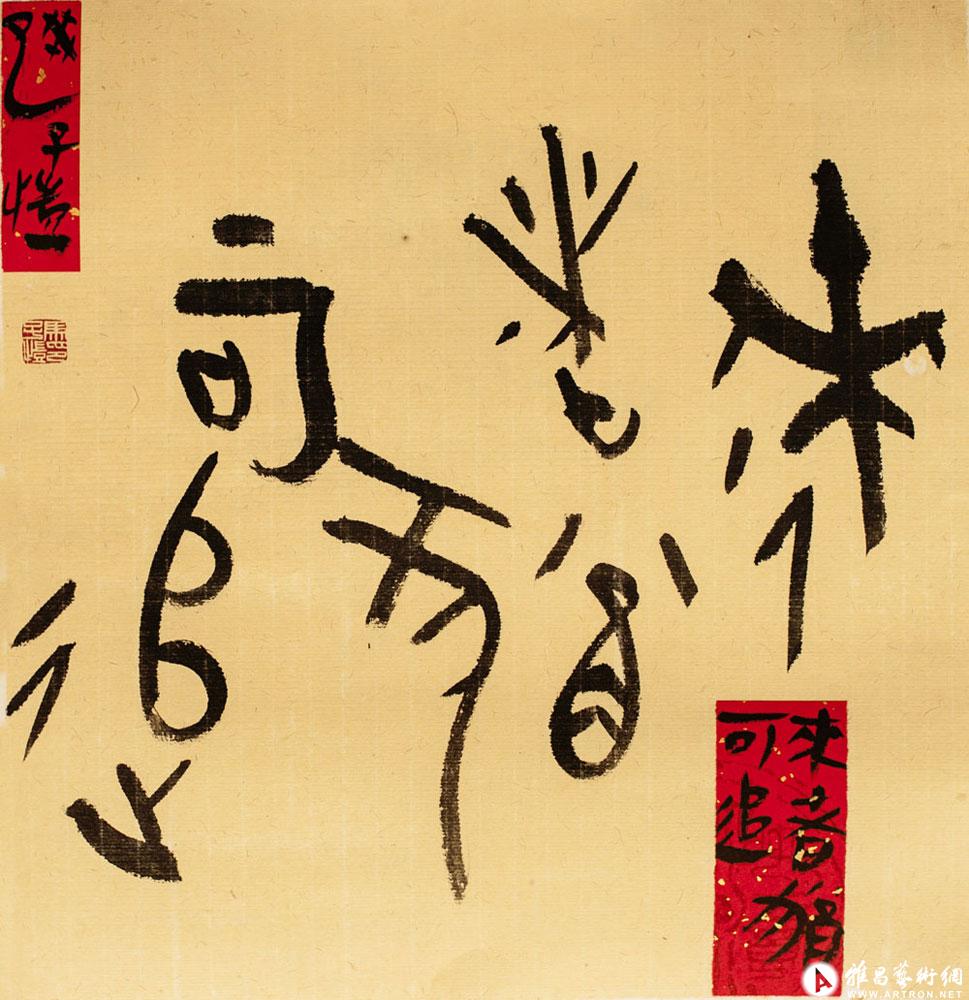 來者
猶可
追
來者猶
可追
雅昌藝術網
WWW.ARTRON.NET